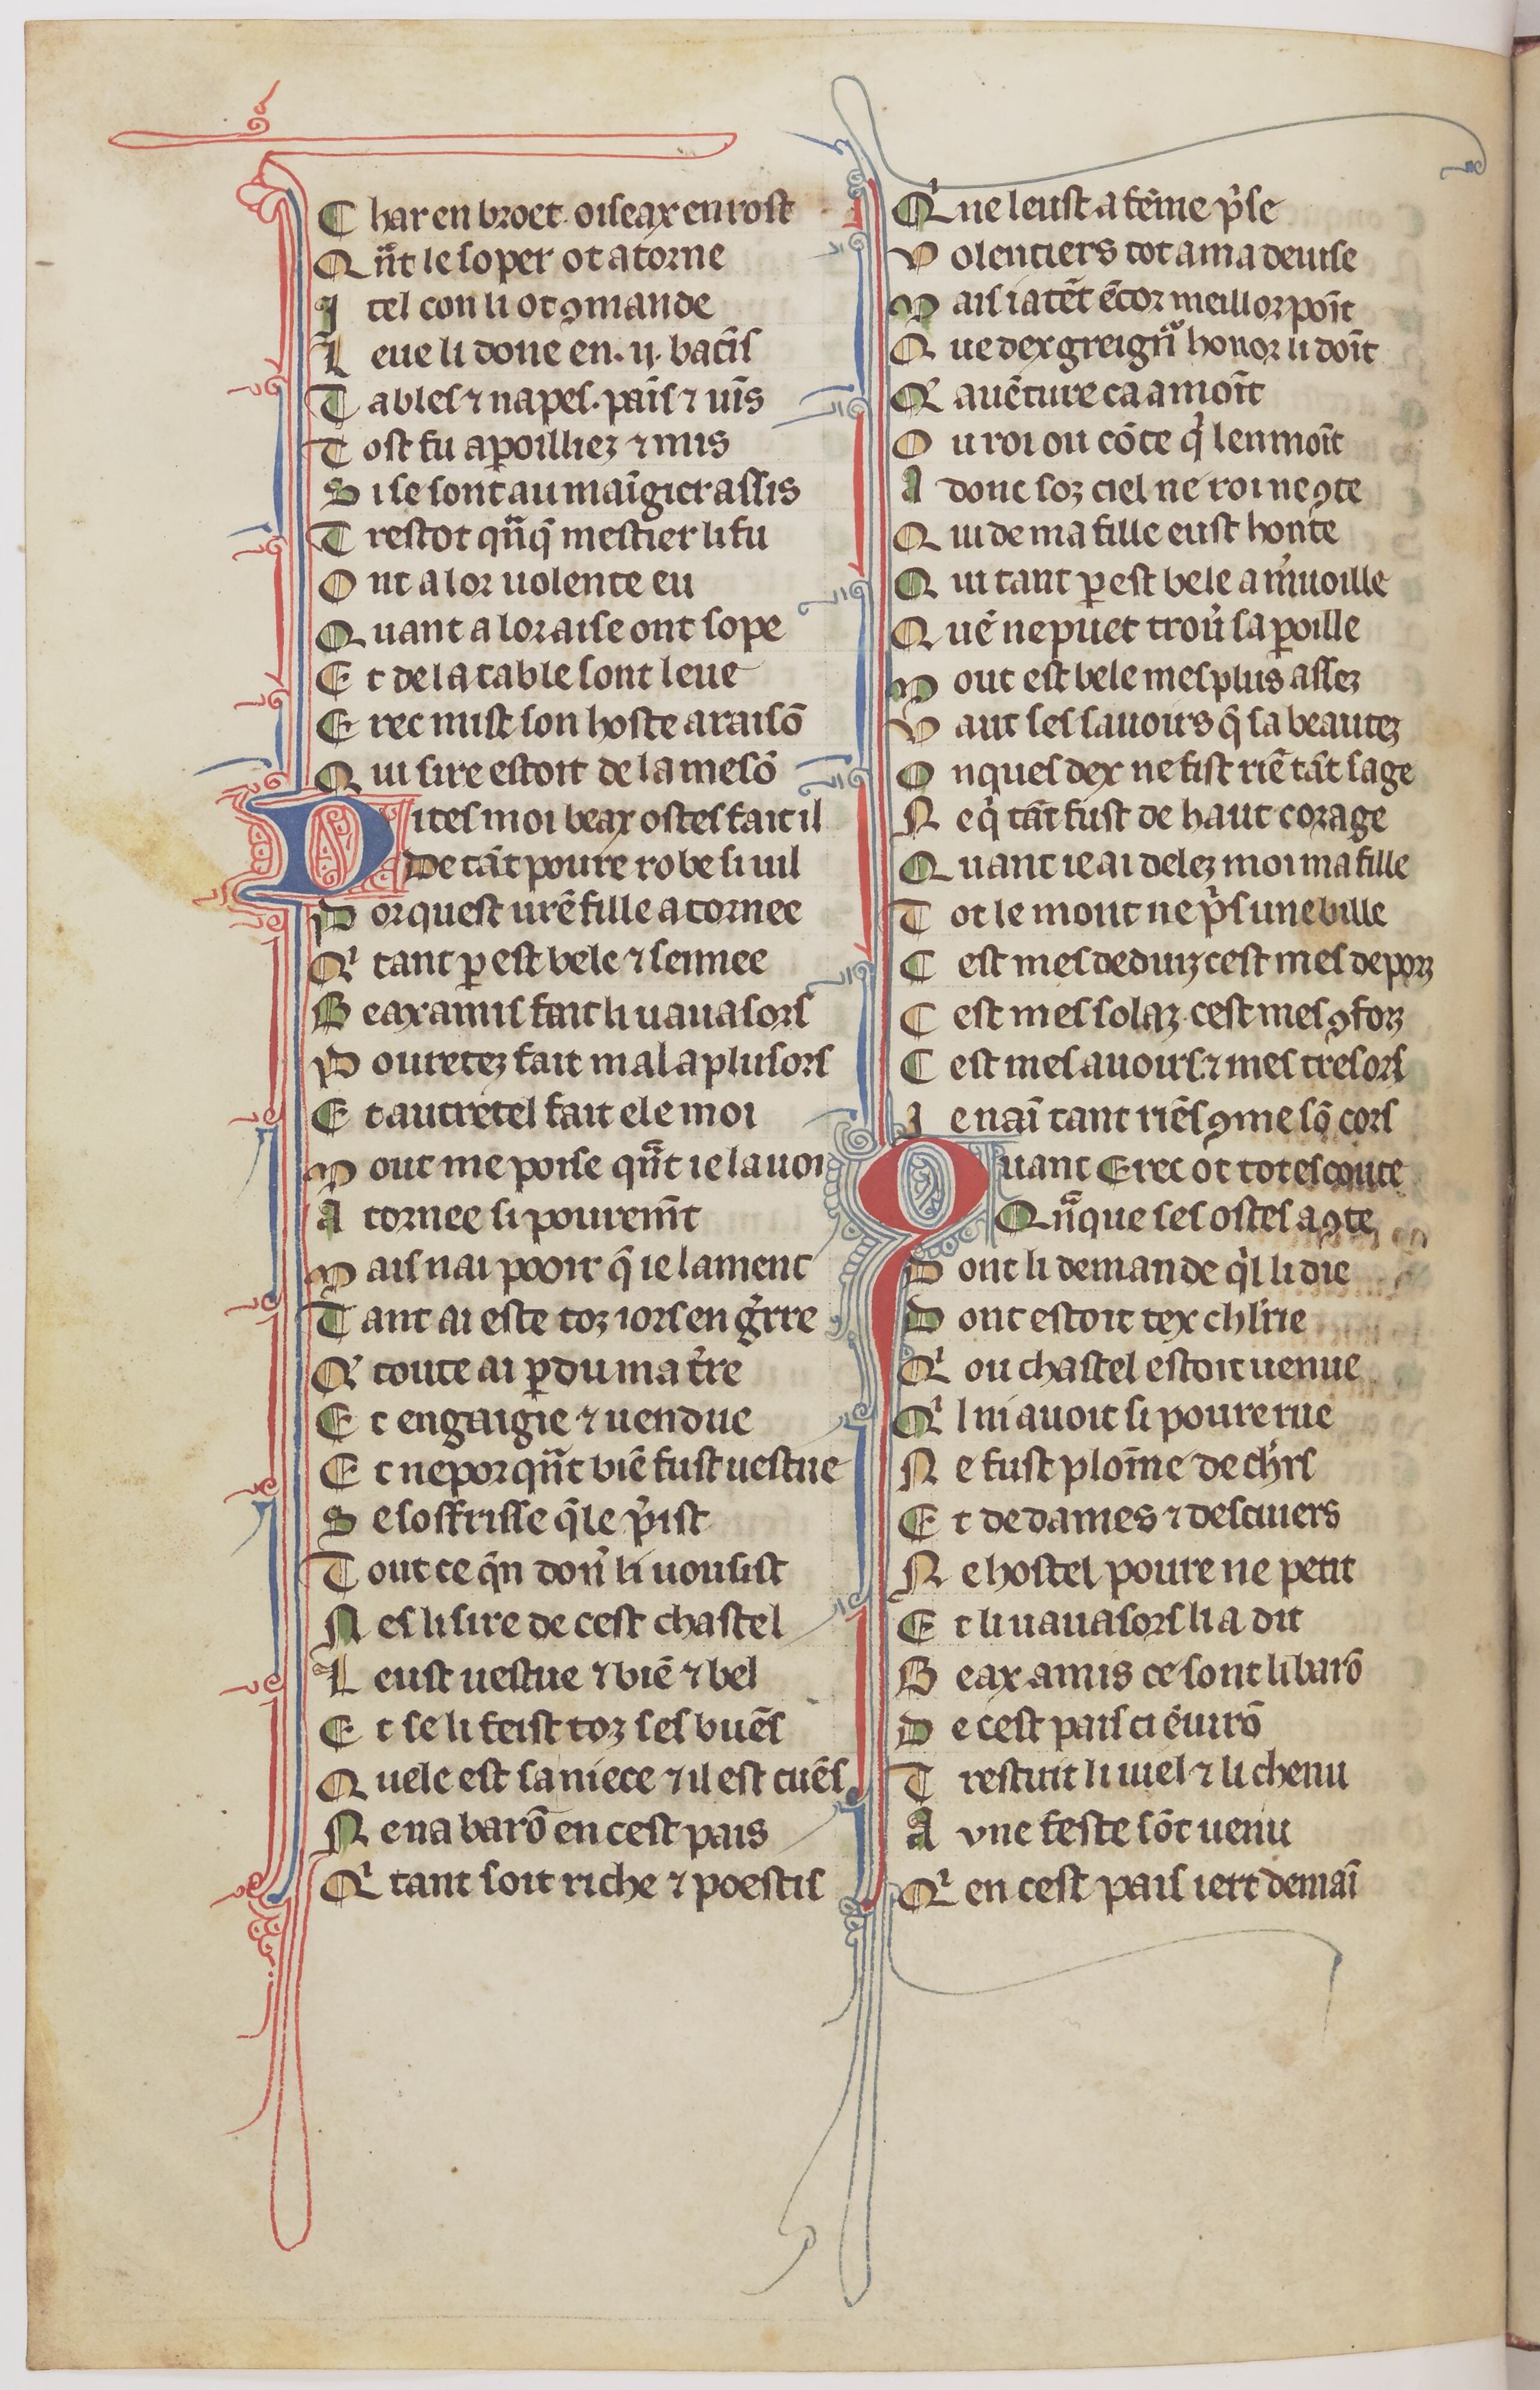 C har en broet. oiseax en rost
Q ñt le soper ot atorne
I tel con li ot ꝯmande
L eue li done en .ii. bacĩs
T ables ⁊ napes. paĩs ⁊ uĩs
T ost fu apoilliez ⁊ mis
S i se sont au maĩgier assis
T restot qñq̃ mestier li fu
O nt a lor uolente eu
Q uant a lor aise ont sope
E t de la table sont leue
E rec mist son hoste a raisõ
Q ui sire estoit de la mesõ
D ites moi beax ostes fait il
De tãt poure robe si uil
P or quest ur̃e fille atornee
Qʼ tant ꝑ est bele ⁊ sennee
B eax amis fait li uauasors
P ouretez fait mal a plusors
E t autretel fait ele moi
M out me poise qñt ie la uoi
A tornee si pourem̃t
M ais nai pooir q̃ ie lament
T ant ai este toz iors en gʼrre
Qʼ toute ai ꝑdu ma tʼre
E t engaigie ⁊ uendue
E t ne por qñt biẽ fust uestue
S e soffrisse qʼle pʼist
T out ce qʼn donʼ li uousist
N es li sire de cest chastel
L eust uestue ⁊ biẽ ⁊ bel
E t se li feist toz ses buẽs
Q uele est sa niece ⁊ il est cuẽs
N en a barõ en cest pais
Qʼ tant soit riche ⁊ poestis
Qʼ ne leust a fẽme pʼse
V olentiers tot a ma deuise
M ais iatẽt ẽcor meillor poĩt
Q ue dex greigñʼ honor li doĩt
Qʼ auẽture ca amoĩt
O u roi ou cõte qʼ lenmoĩt
A donc soz ciel ne roi ne ꝯte
Q ui de ma fille eust honte
Q ui tant ꝑ est bele a mʼuoille
Q uẽ ne puet trouʼ sa paroille
M out est bele mes plus assez
V aut ses sauoirs q̃ sa beautez
O nques dex ne fist riẽ tãt sage
N e qʼ tãt fust de haut corage
Q uant ie ai delez moi ma fille
T ot le mont ne pʼs une bille
C est mes deduiz cest mes deporz
C est mes solaz. cest mes ꝯforz
C est mes auoirs. ⁊ mes tresors
I e naĩ tant riẽs ꝯme sõ cors
Q uant Erec ot tot escoute
Qñque ses ostes a ꝯte
D ont li demande qʼl li die
D ont estoit tex chl̃rie
Qʼ ou chastel estoit uenue
Qʼ l ni auoit si poure rue
N e fust ploĩne de chʼrs
E t de dames ⁊ desciuiers
N e hostel poure ne petit
E t li uauasors li a dit
B eax amis ce sont li barõ
D e cest pais ci ẽuirõ
T restuit li uiel ⁊ li chenu
A vne feste sõt uenu
Qʼ en cest pais iert demaĩ